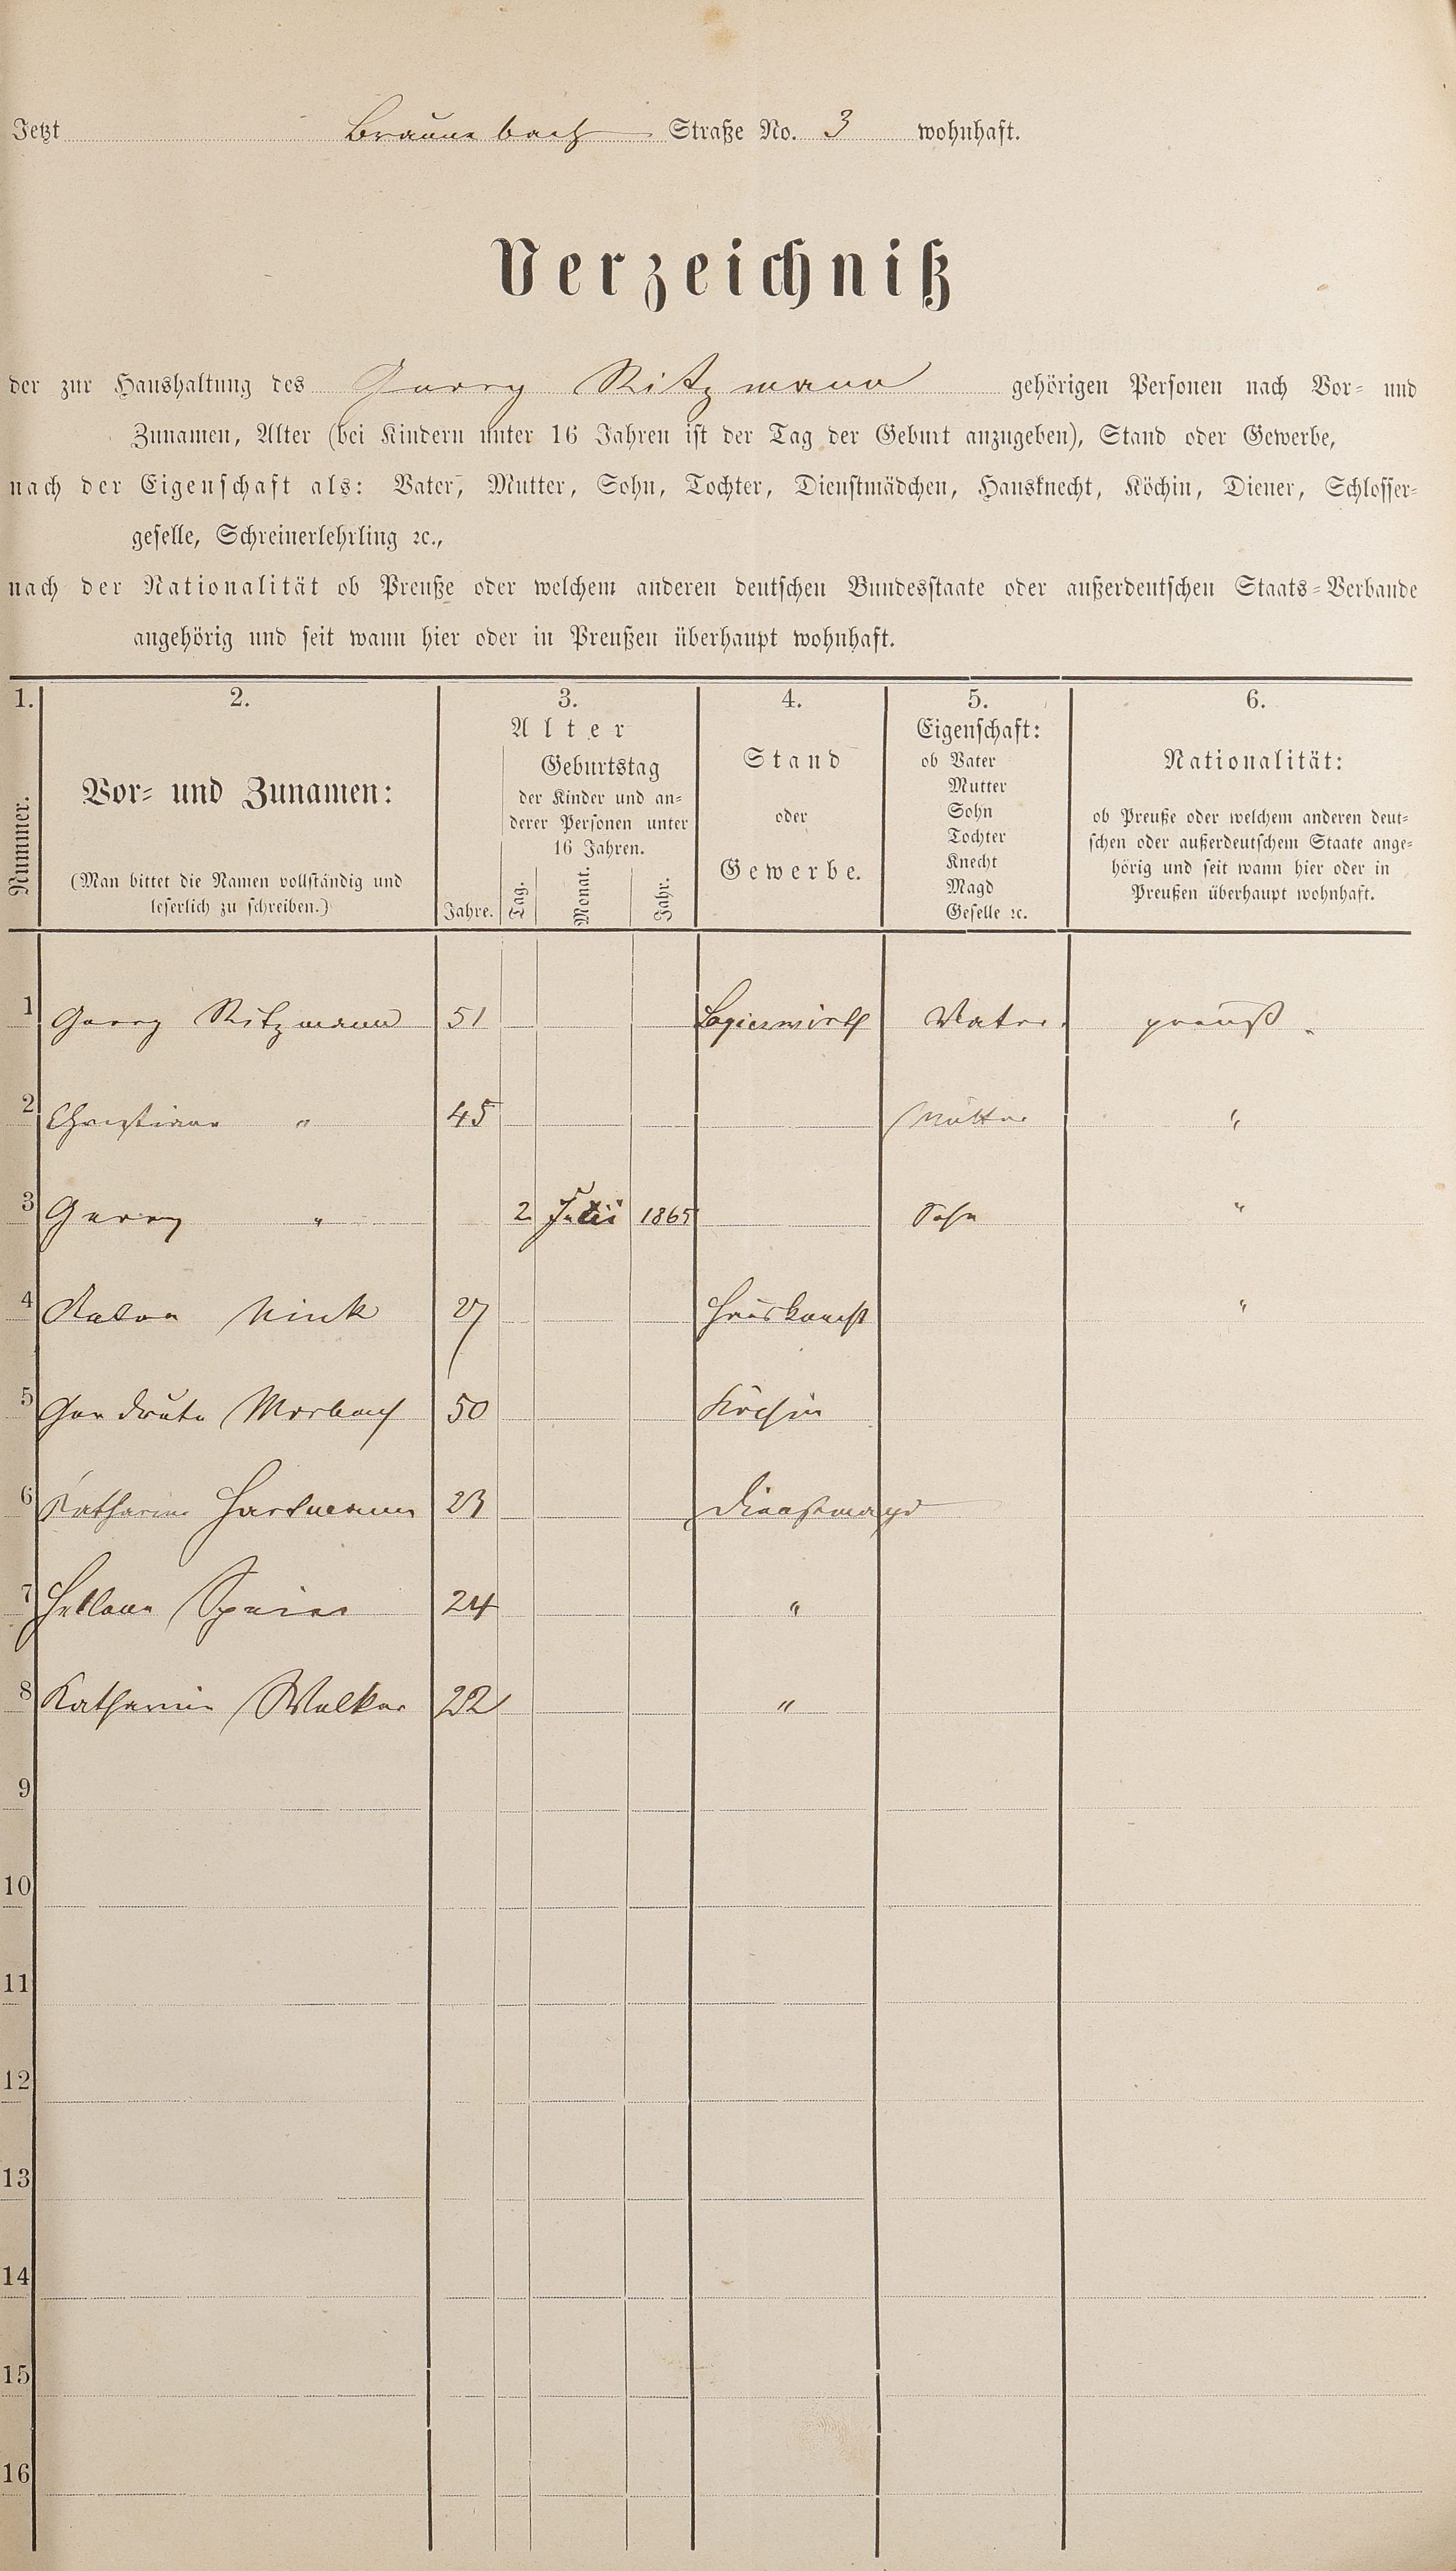 Jetzt Braunebach Straße No. 3 wohnhaft.
Verzeichniß
der zur Haushaltung des Georg Ritzmann gehörigen Personen nach Vor- und
Zunamen, Alter (bei Kindern unter 16 Jahren ist der Tag der Geburt anzugeben), Stand oder Gewerbe,
nach der Eigenschaft als: Vater, Mutter, Sohn, Tochter, Dienstmädchen, Hausknecht, Köchin, Diener, Schlosser-
geselle, Schreinerlehrling ꝛc.,
nach der Nationalität ob Preuße oder welchem anderen deutschen Bundesstaate oder außerdeutschen Staats-Verbande
angehörig und seit wann hier oder in Preußen überhaupt wohnhaft.
1. 2. 3. 4. 5. 6.
Nummer.
Vor- und Zunamen:
(Man bittet die Namen vollständig und
leserlich zu schreiben.)
Alter
Jahre.
Geburtstag
der Kinder und an-
derer Personen unter
16 Jahren.
Tag. Monat. Jahr.
Stand
oder
Gewerbe.
Eigenschaft:
ob Vater
Mutter
Sohn
Tochter
Knecht
Magd
Geselle ꝛc.
Nationalität:
ob Preuße oder welchem anderen deut-
schen oder außerdeutschem Staate ange-
hörig und seit wann hier oder in
Preußen überhaupt wohnhaft.
1 Georg Ritzmann 51 Logierwirth Vater. preuß.
2 Christiane " 45 Mutter "
3 Georg " 2 Julii 1865 Sohn "
4 Nink 27 Hausknecht "
5 Gerdrute Morbach 50 Köchin
6 Katharine Hartmann 23 Dienstmagd
7 Hellene Speier 24 "
8 Katharine Walker 22 "
9
10
11
12
13
14
15
16